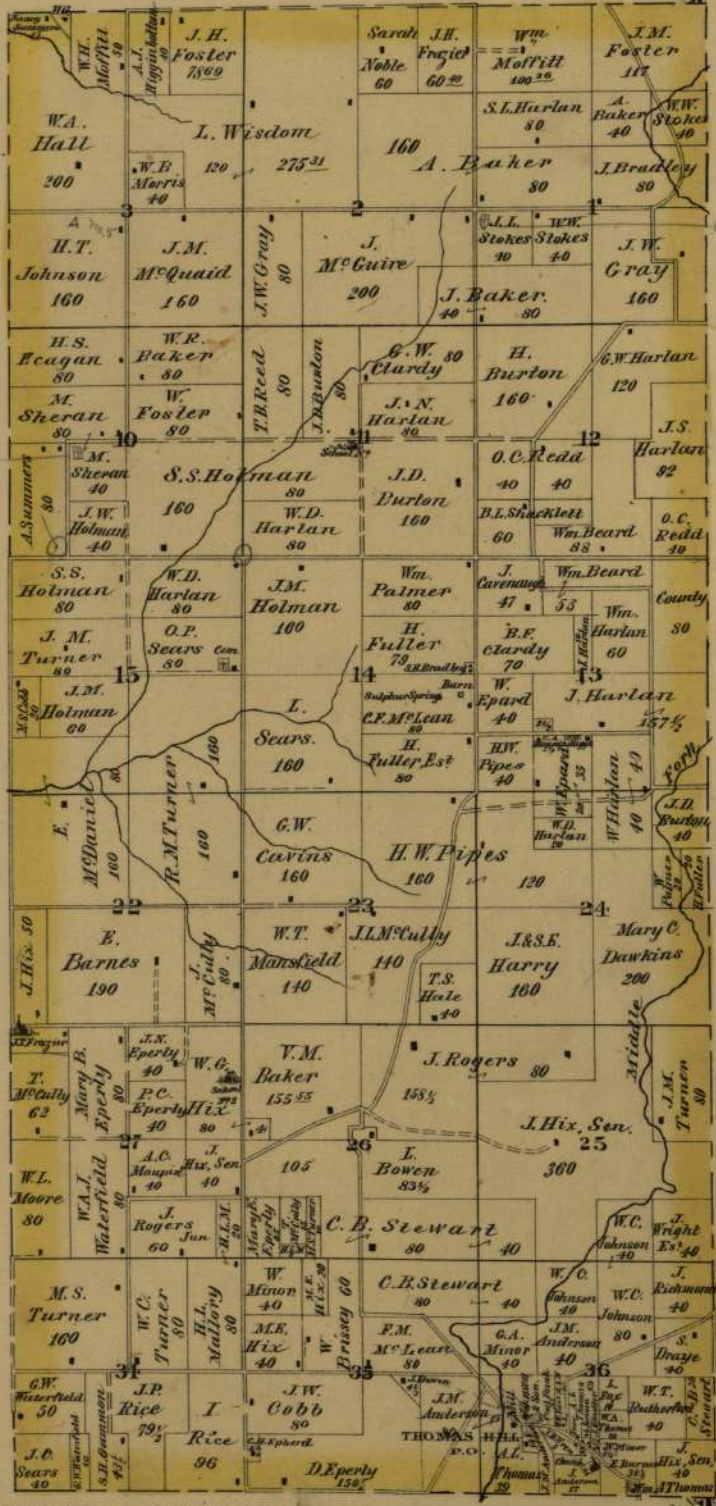 W.H.
Moffitt
50
A.J.
Higginbotham
40
J. H.
Foster
78 69
Sarah
Noble
60
J.H.
Frazier
60 40
Wm
Moffitt
100 26
J. M.
Foster
117
W.A.
Hall
200
L. Wisdom
120
275 31
W.B.
Morris
40
160
A. Baker
80
S.L. Harlan
80
A.
Baker
40
W.W.
Stokes
40
J. Bradley
80
3
2
1
H. T.
Johnson
160
J.M.
McQuaid
160
J.W. Gray
80
J.
McGuire
200
J.L.
Stokes
40
W.W.
Stokes
40
J. W.
Gray
160
J. Baker.
40
80
H.S.
Ecagan
80
W.R.
Baker
80
T.B. Reed
80
J.D. Burton
80
G.W.
Clardy
80
H.
Burton
160
G.W. Harlan
120
M.
Sheran
80
W.
Foster
80
J. N.
Harlan
80
J.S.
Harlan
92
10
11
12
A. Summers
80
M.
Sheran
40
J.W.
Holman
40
S.S. Holman
160
80
W.D.
Harlan
80
J.D.
Burton
160
O.C. Redd
40
40
B.L. Shacklett
60
Wm. Beard
88
O.C.
Redd
40
S.S.
Holman
80
W.D.
Harlan
80
J.M.
Holman
160
Wm.
Palmer
80
J.
Cavenaugh
47
Wm. Beard
53
County
80
J. M.
Turner
80
O.P.
Sears
80
Cem
H.
Fuller
79
B.F.
Clardy
70
J. Harlan
Wm.
Harlan
60
15
14
13
J.M.
Holman
60
L.
Sears.
160
Sulphur Spring
Barn
C.F. McLean
80
H.
Fuller, Est
80
W.
Epard
40
J. Harlan
157 1/2
H.W.
Pipes
40
W. Epard
35
W. Harlan
40
40
W.D.
Harlan
20
Fork
E.
McDaniel
160
80
R.M. Turner
160
160
G.W.
Cavins
160
H. W. Pipes
160
120
J.D.
Burton
40
W.
Palmer
20
H. Fuller
20
22
23
24
J. Hix 50
E.
Barnes
190
J.
McCully
80
W.T.
Mansfield
140
J.L. McCully
140
T.S.
Hale
40
J.&S.E.
Harry
160
Mary C.
Dawkins
200
J.T. Frazier
T.
McCully
62
Mary B.
Eperly
80
J.N.
Eperly
40
P.C.
Eperly
40
W.G.
Hix
80
School
No 2
V.M.
Baker
155 55
J. Rogers
158 1/2
80
Middle
J.M.
Turner
80
27
26
25
J. Hix, Sen.
360
W.L.
Moore
80
W.A.J.
Waterfield
80
A.C.
Maupin
40
J.
Hix, Sen
40
105
L.
Bowen
83 1/2
J.
Rogers
Jun
60
H.L.M.
20
Mary E.
Eperly
C. B. Stewart
80
40
W.C.
Johnson
40
J.
Wright
Est 40
M.S.
Turner
160
W.C.
Turner
80
H.L.
Mallory
80
W.
Minor
40
M.E.
Hix 20
M.E.
Hix
40
W.
Brissey 60
C.B. Stewart
80
40
W. C.
Johnson
40
W.C.
Johnson
80
J.
Richmond
40
F.M.
McLean
80
G.A.
Minor
40
J.M.
Anderson
40
S.
Draye
40
34
35
36
G.W.
Waterfield
50
J.C.
Sears
40
G.W. Waterfield
S.H. Gammon
43 1/2
J.P.
Rice
79 1/2
I
Rice
96
J.W.
Cobb
80
C.H. Epherd
D. Eperly
150 1/2
J.M.
Anderson
THOMAS HILL
P.O.
A.L.
Thomas
39
W.T.
Rutherford
40
C.B.
Stewart
J.
Hix, Sen.
40
Wm. A Thomas